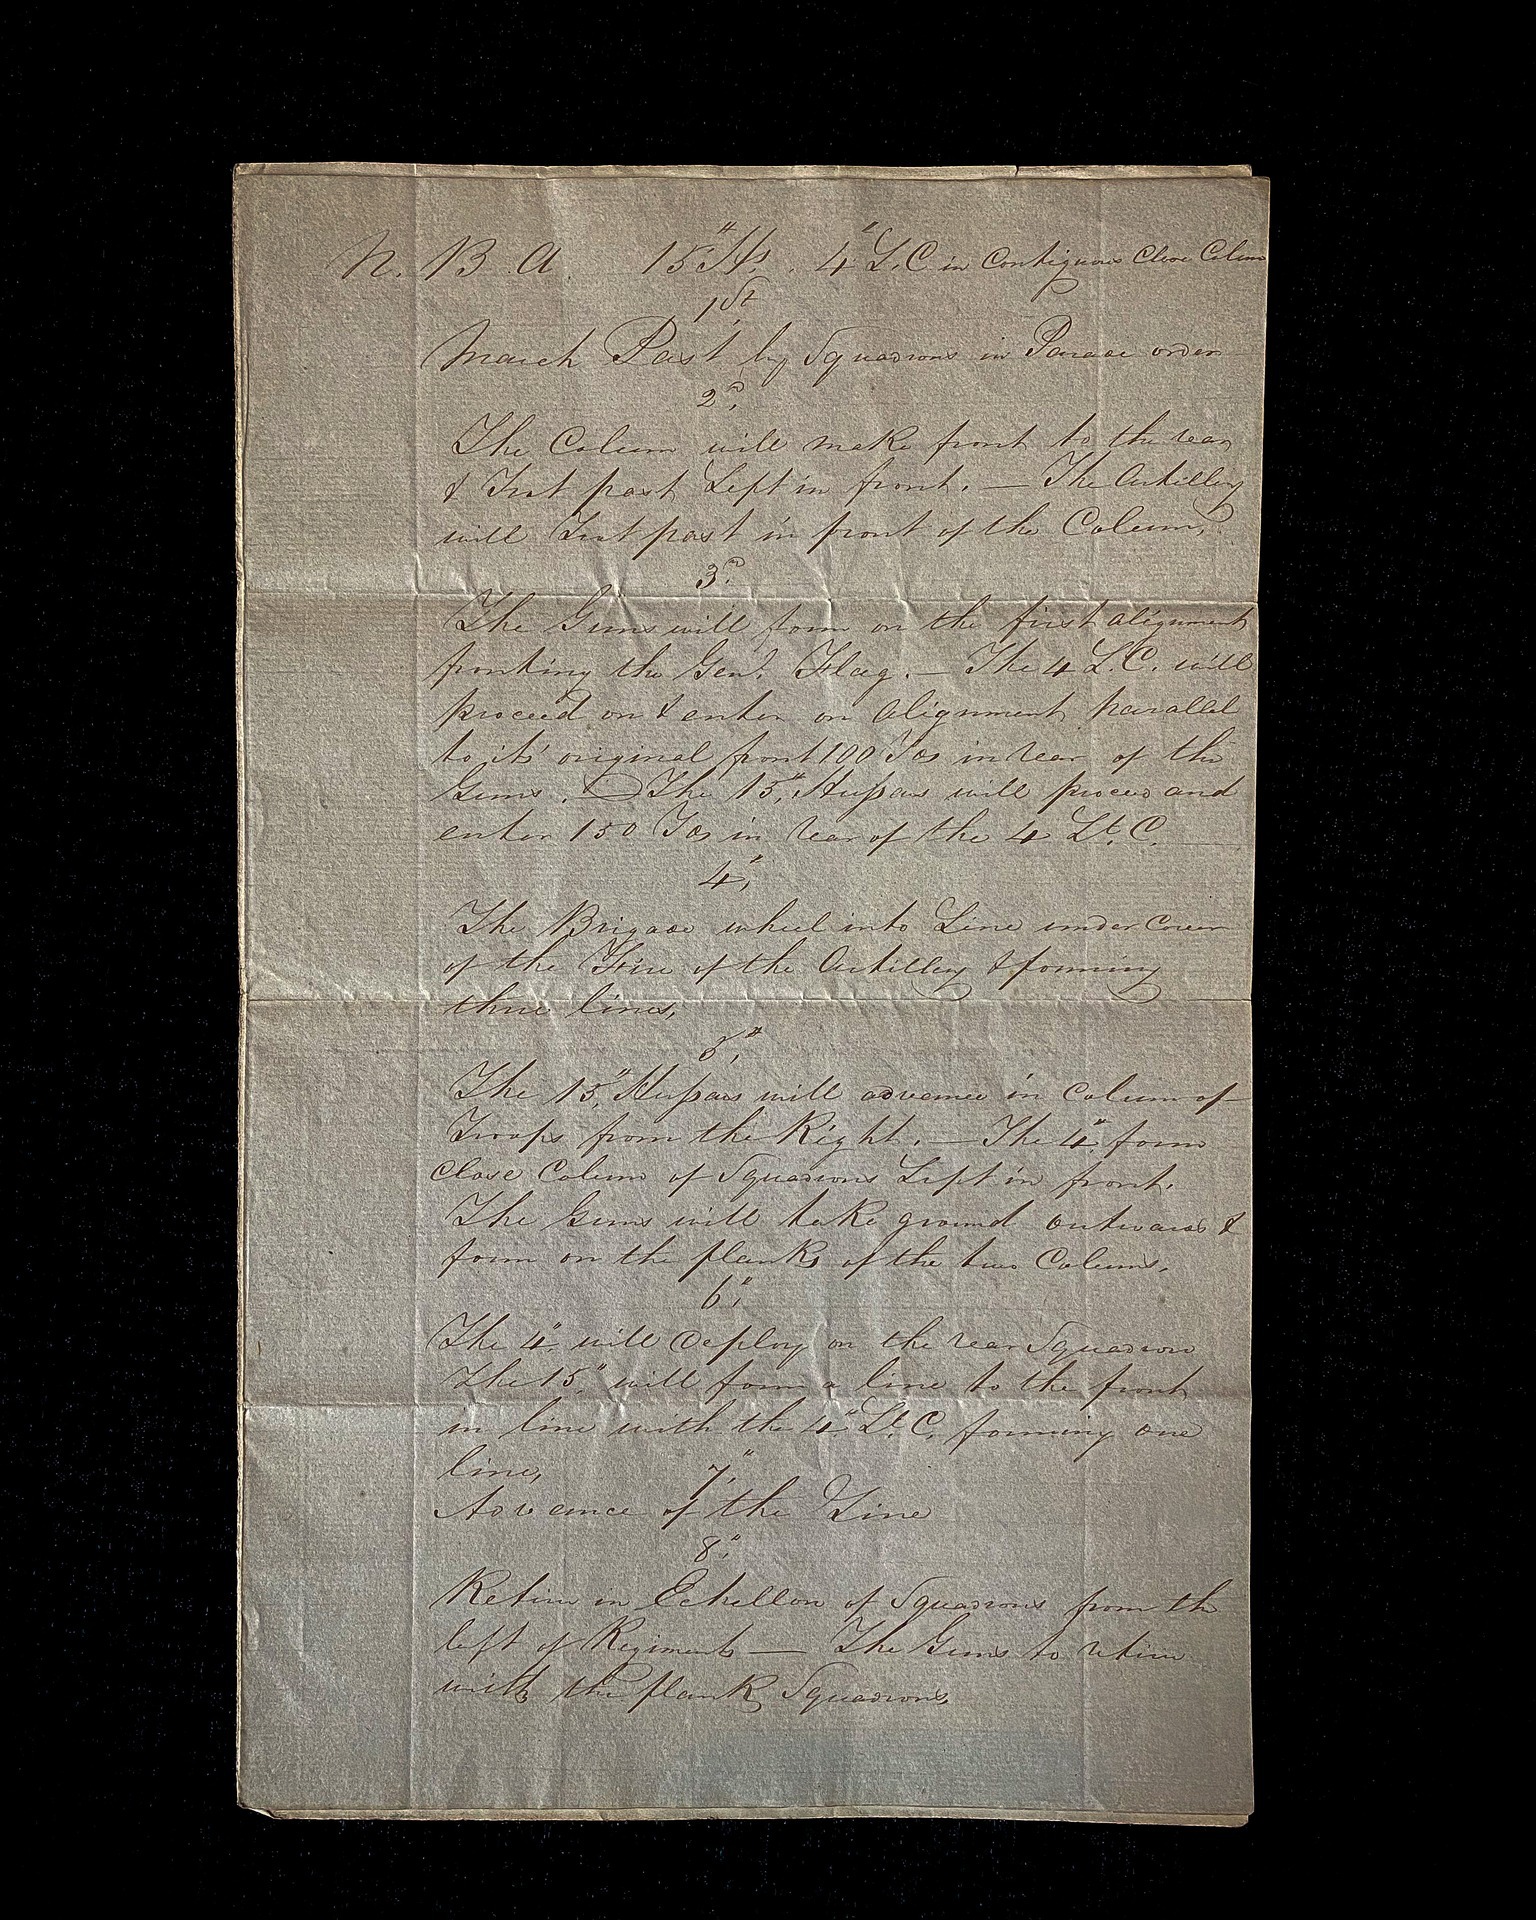 N. B. A. 15" Hs. 4" L.C in Contiguous Close Colum
1st
March Past by Squadrons in Parade order
2d,
The Colum will make front to the rear
& Trot past Left in front. — The Artillery
will Trot past in front of the Colum,
3d
The Guns will form on the first alignment
fronting the Genl. Flag. — The 4 L.C. will
proceed on & enter on alignment parallel
to it's original front 100 Yds in rear of the
Guns. — The 15," Hussars will proceed and
enter 150 Yds in rear of the 4 Lt. C.
4",
The Brigade wheel into Line under Cover
of the Fire of the Artillery & forming
three lines,
5,"
The 15," Hussars will advance in Colum of
Troops from the Right. — The 4" form
Close Colum of Squadrons Left in front.
The Guns will take ground outwards &
form on the flanks of the two Colums.
6",
The 4" will deploy on the rear Squadron
The 15," will form a line to the front
in line with the 4" Lt. C. forming one
line,
7,"
Advance of the Line
8",
Retire in Echellon of Squadrons from the
left of Regiments — The Guns to retire
with the flank Squadrons,